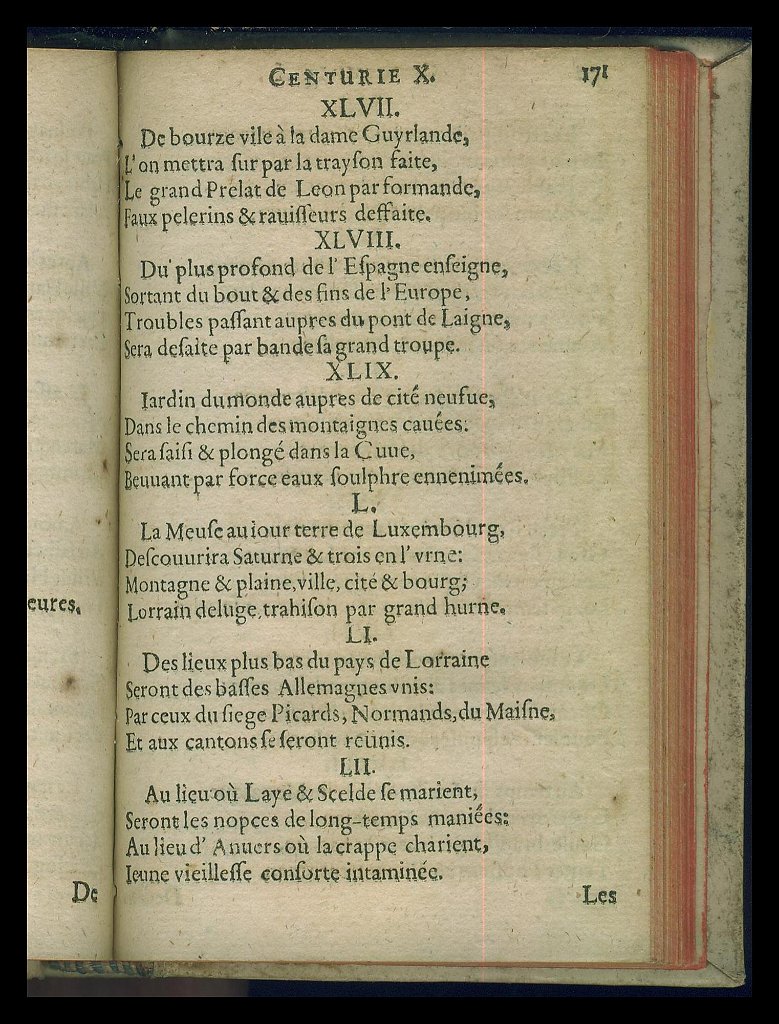 CENTURIE X. 171
XLVII.
De bourze vile à la dame Guyrlande,
L'on mettra ſur par la trayſon faite,
Le grand Prelat de Leon par formande,
Faux pelerins & rauiſſeurs deffaite.
XLVIII.
Du plus profond de l' Eſpagne enſeigne,
Sortant du bout & des fins de l' Europe,
Troubles paſſant aupres du pont de Laigne,
Sera defaite par bande ſa grand troupe.
XLIX.
Iardin du monde aupres de cité neufue,
Dans le chemin des montaignes cauées:
Sera ſaiſi & plongé dans la Cuue,
Beuuant par force eaux ſoulphre ennenimées.
L.
La Meuſe au iour terre de Luxembourg,
Deſcouurira Saturne & trois en l' vrne:
Montagne & plaine, ville, cité & bourg;
Lorrain deluge, trahiſon par grand hurne.
LI.
Des lieux plus bas du pays de Lorraine
Seront des baſſes Allemagnes vnis:
Par ceux du ſiege Picards, Normands, du Maiſne,
Et aux cantons ſe ſeront reünis.
LII.
Au lieu où Laye & Scelde ſe marient,
Seront les nopces de long-temps maniées:
Au lieu d' Anuers où la crappe charient,
Ieune vieilleſſe conſorte intaminée.
Les
eures.
De